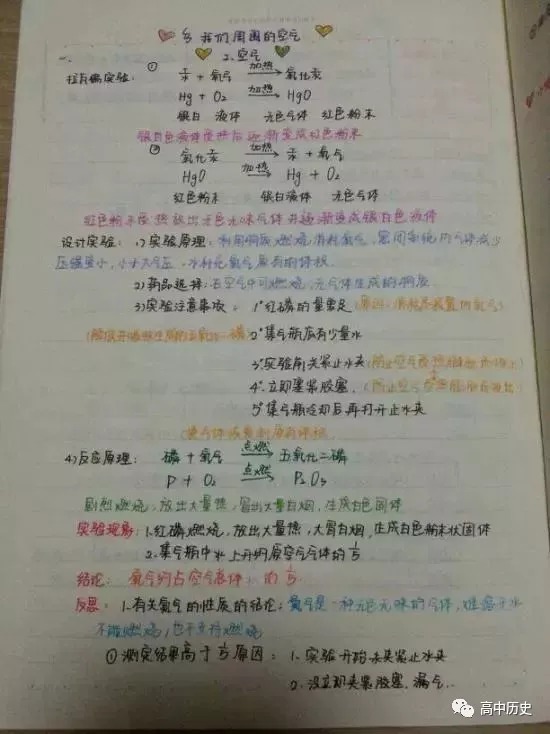 我们周围的空气
2.空气
一、
拉瓦锡实验: ① 汞 + 氧气 加热 氧化汞
Hg + O₂ 加热 HgO
银白 液体 无色气体 红色粉末
银白色液体受热后逐渐变成红色粉末
② 氧化汞 加热 汞 + 氧气
HgO 加热 Hg + O₂
红色粉末 银白液体 无色气体
红色粉末受热放出无色无味气体并逐渐变成银白色液体
设计实验: 1)实验原理: 利用物质燃烧消耗氧气,密闭 内气体减少
压强 小,小于大气压,水 氧气原有的体积.
2)药品选择: 在空气中可燃烧,无气体生成的物质
3)实验注意事项: 1°红磷的量要足
2°集气瓶底有少量水
3°实验前夹紧止水夹
4°立即塞紧胶塞.
5°集气瓶冷却后再打开止水夹
4)反应原理: 磷 + 氧气 点燃 五氧化二磷
P + O₂ 点燃 P₂O₅
剧烈燃烧,放出大量热,冒出大量白烟,生成白色固体
实验现象: 1.红磷燃烧,放出大量热,大冒白烟,生成白色粉末状固体
2.集气瓶中水上升约原空气气体的1/5
结论: 氧气约占空气 的1/5
反思: 1.有关氮气的性质的结论: 氮气是一种无色无味的气体,难溶于水
不能燃烧,也不支持燃烧
①测定结果高于1/5原因: 1.实验开始未夹紧止水夹
2.没立即夹紧胶塞,漏气..
高中历史